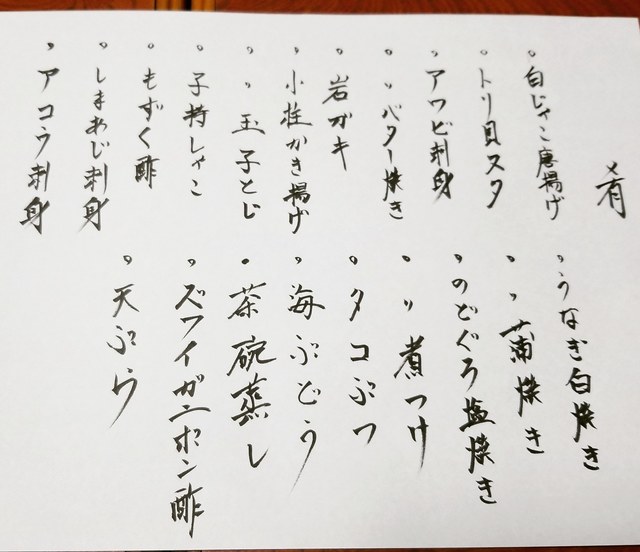 肴
・白じゃこ唐揚げ
・トリ貝スク
・アワビ刺身
・〃バター焼き
・岩ガキ
・小柱かき揚げ
・〃玉子とじ
・子持しゃこ
・もずく酢
・しまあじ刺身
・アコウ刺身
・うなぎ白焼き
・〃蒲焼き
・のどぐろ塩焼き
・〃煮つけ
・タコぶつ
・海ぶどう
・茶碗蒸し
・ズワイガニポン酢
・天ぷら